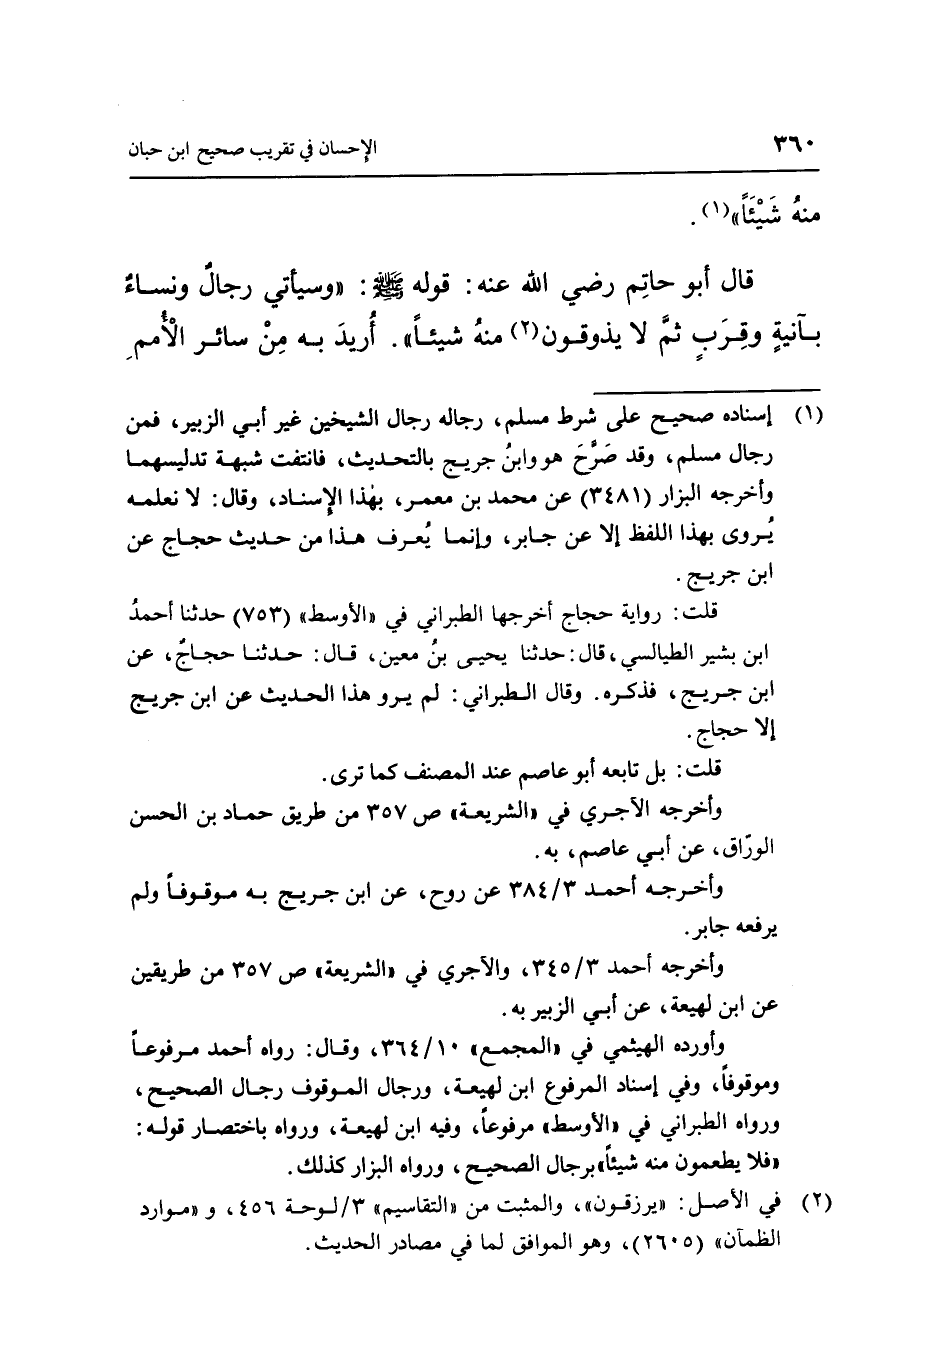 ٣٦٠ الإحسان في تقريب صحيح ابن حبان
منهُ شَيْئَاً»(١).
قال أبو حاتِم رضي الله عنه: قوله ﷺ: «وسيأتي رجالٌ ونساءٌ
بآنيةٍ وقِرَبٍ ثمَّ لا يذوقون(٢) منهُ شيئاً». أُريدَ به مِنْ سائر الْأُمم
(١) إسناده صحيح على شرط مسلم، رجاله رجال الشيخين غير أبي الزبير، فمن
رجال مسلم، وقد صَرَّحَ هو وابنُ جريج بالتحديث، فانتفت شبهة تدليسهما
وأخرجه البزار (٣٤٨١) عن محمد بن معمر، بهٰذا الإِسناد، وقال: لا نعلمه
يُروى بهذا اللفظ إلا عن جابر، وإنما يُعرف هذا من حديث حجاج عن
ابن جريج.
قلت: رواية حجاج أخرجها الطبراني في «الأوسط» (٧٥٣) حدثنا أحمدُ
ابن بشير الطيالسي، قال: حدثنا يحيى بنُ معين، قال: حدثنا حجاجٌ، عن
ابن جريج، فذكره. وقال الطبراني: لم يرو هذا الحديث عن ابن جريج
إلا حجاج.
قلت: بل تابعه أبو عاصم عند المصنف كما ترى.
وأخرجه الآجري في «الشريعة» ص ٣٥٧ من طريق حماد بن الحسن
الورّاق، عن أبي عاصم، به.
وأخرجه أحمد ٣٨٤/٣ عن روح، عن ابن جريج به موقوفاً ولم
يرفعه جابر.
وأخرجه أحمد ٣٤٥/٣، والآجري في «الشريعة» ص ٣٥٧ من طريقين
عن ابن لهيعة، عن أبي الزبير به.
وأورده الهيثمي في «المجمع» ٣٦٤/١٠، وقال: رواه أحمد مرفوعاً
وموقوفاً، وفي إسناد المرفوع ابن لهيعة، ورجال الموقوف رجال الصحيح،
ورواه الطبراني في «الأوسط» مرفوعاً، وفيه ابن لهيعة، ورواه باختصار قوله:
«فلا يطعمون منه شيئاً» برجال الصحيح، ورواه البزار كذلك.
(٢) في الأصل: «يرزقون»، والمثبت من «التقاسيم» ٣/لوحة ٤٥٦، و «موارد
الظمآن» (٢٦٠٥)، وهو الموافق لما في مصادر الحديث.